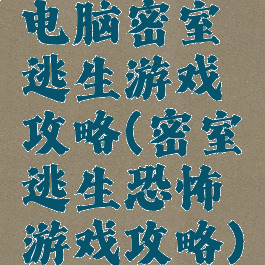 电脑密室
逃生游戏
攻略(密室
逃生恐怖
游戏攻略)